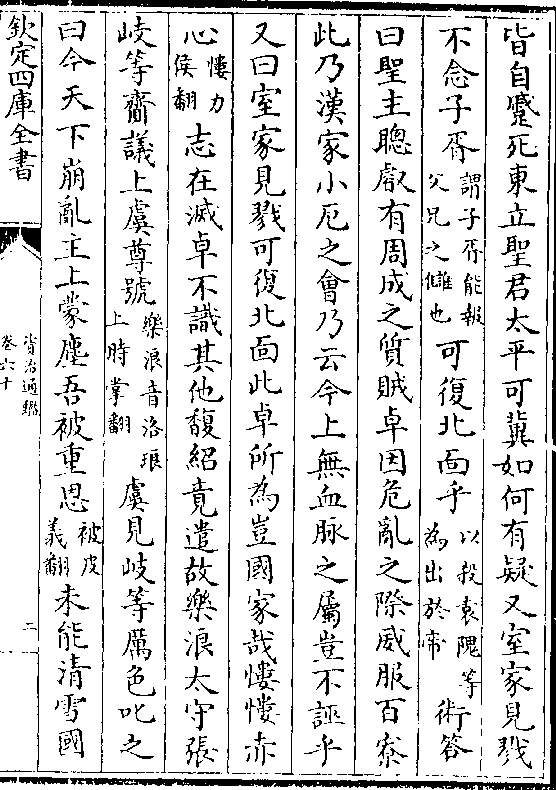 皆自蹙死東立聖君太平可冀如何有疑又室家見戮
不念子胥謂子胥能報父兄之讎也可復北面乎以殺袁隗等為出於帝術答
曰聖主聰叡有周成之質賊卓因危亂之際威服百寮
此乃漢家小厄之會乃云今上無血脉之屬豈不誣乎
又曰室家見戮可復北面此卓所為豈國家哉慺慺赤
心慺力侯翻志在滅卓不識其他馥紹竟遣故樂浪太守張
岐等齎議上虞尊號樂浪音洛琅上時掌翻虞見岐等厲色叱之
曰今天下崩亂主上蒙塵吾被重恩被皮義翻未能清雪國
欽定四庫全書
資治通鑑
卷六十
二